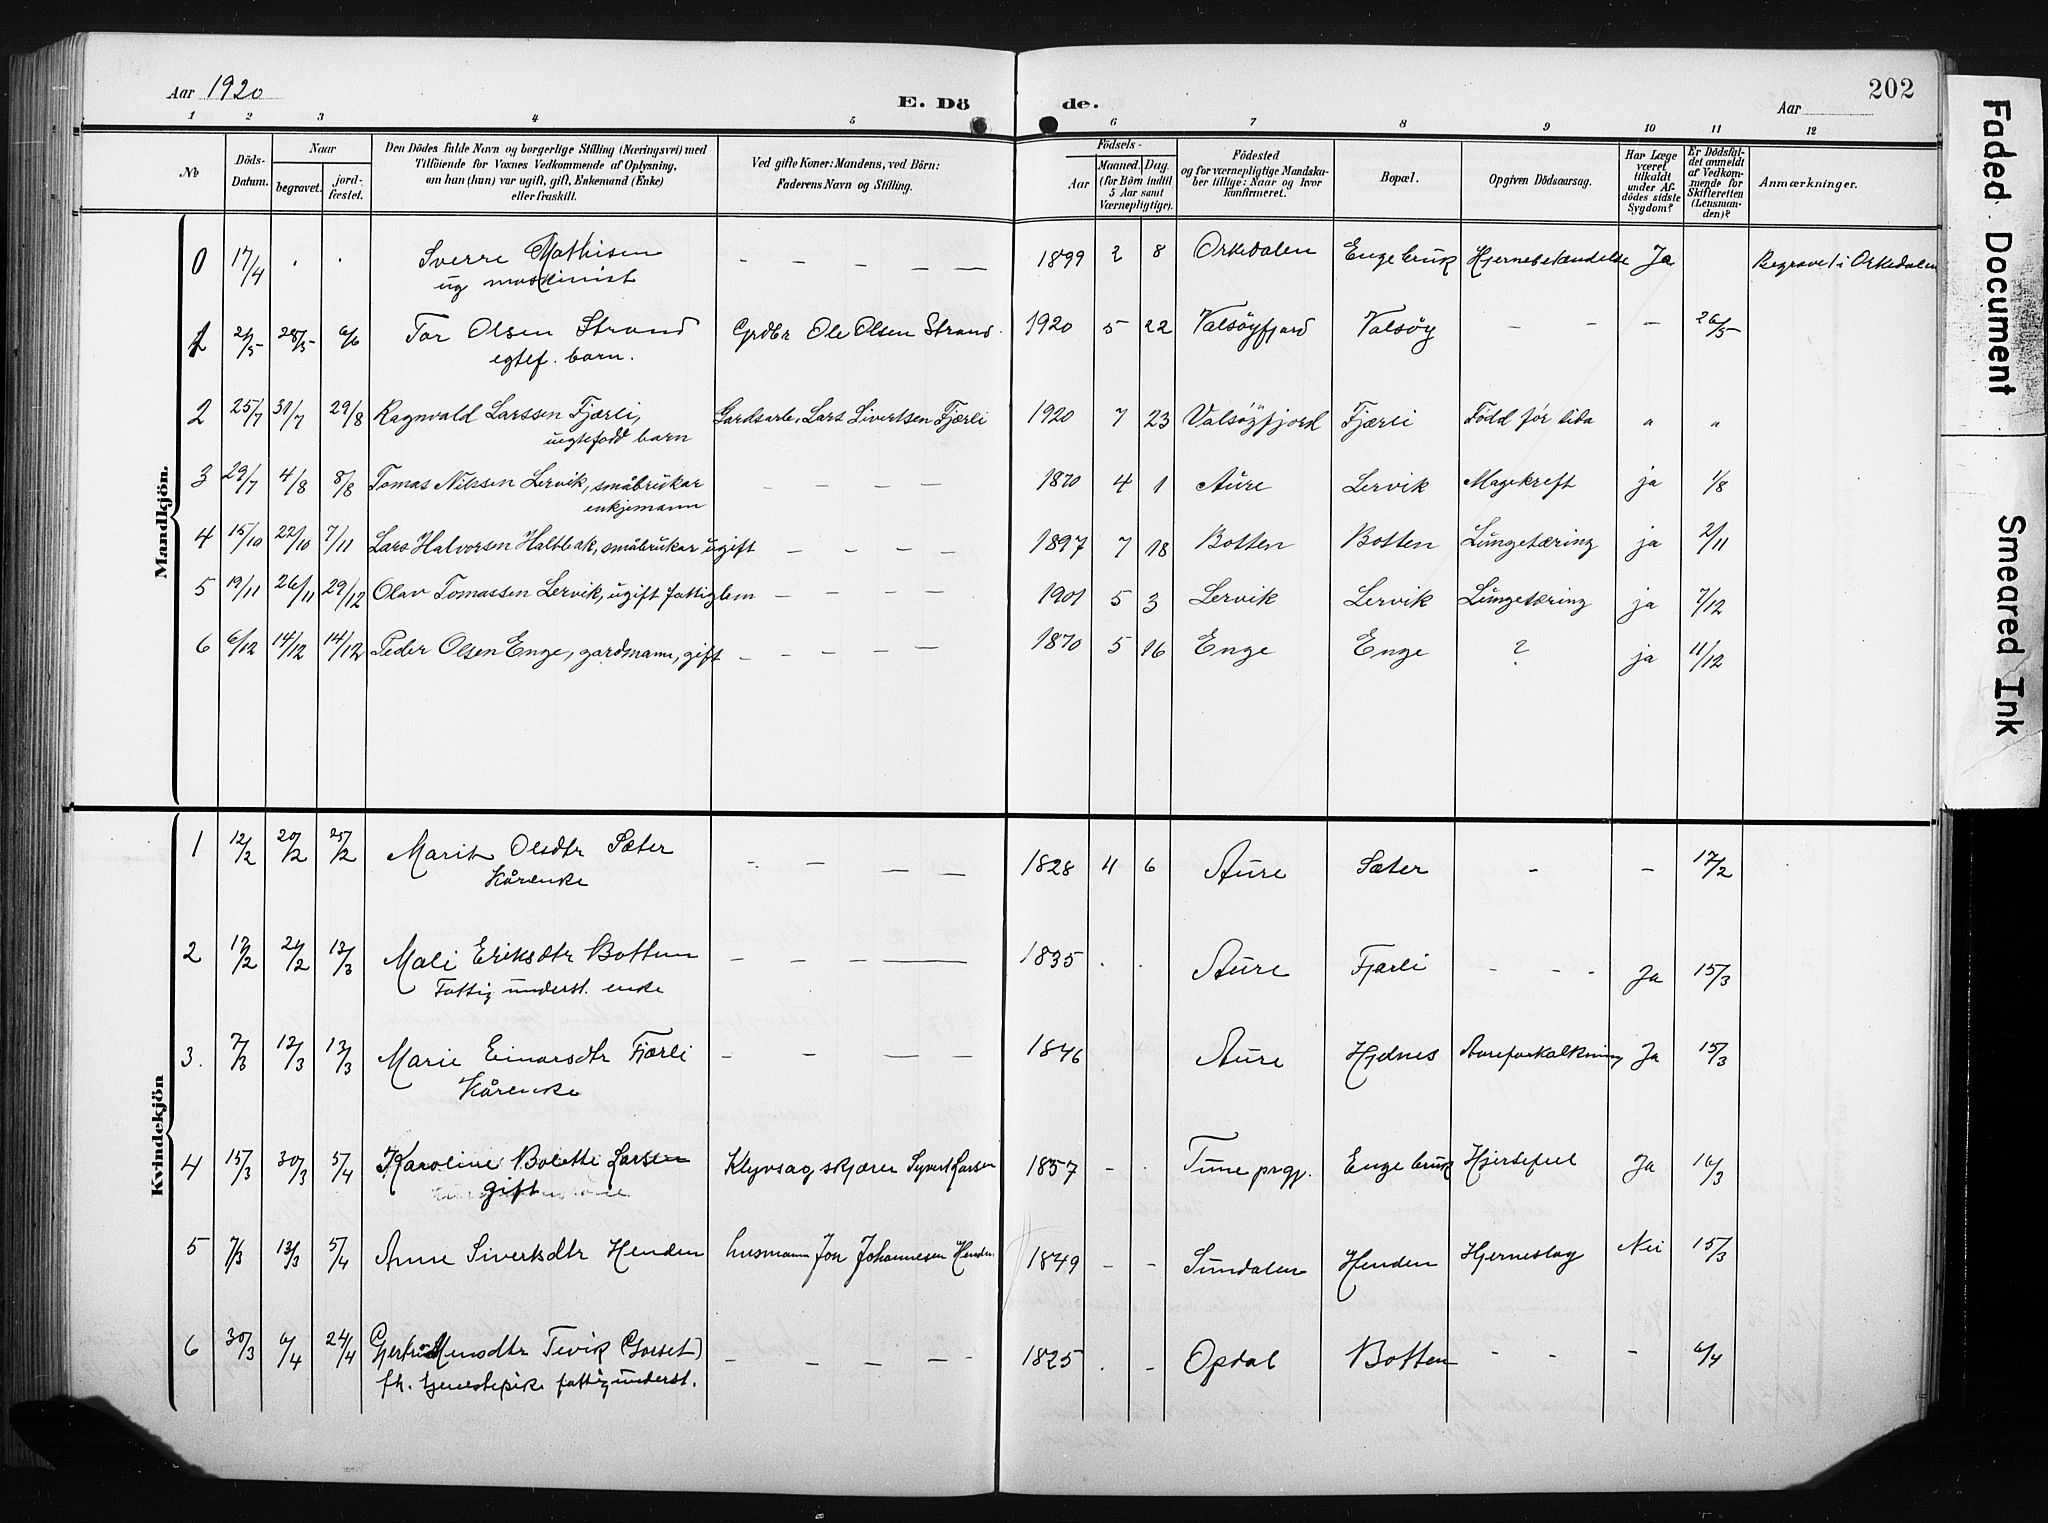 Aar 1920
E. Döde.
Aar
202
1 2 3 4 5 6 7 8 9 10 11 12
No
Döds-Datum.
Naar
begravet.
jordfæstet.
Den Dödes fulde Navn og borgerlige Stilling (Næringsvei) med
Tilföiende for Voxnes Vedkommende af Oplysning,
om han (hun) var ugift, gift, Enkemand (Enke)
eller fraskilt.
Ved gifte Koner: Mandens, ved Börn:
Faderens Navn og Stilling.
Födsels-
Aar
Maaned. Dag.
(for Börn indtil
5 Aar samt
Værnepligtige).
Födested
og for værnepligtige Mandska-
ber tillige: Naar og hvor
konfirmeret.
Bopæl.
Opgiven Dödsaarsag.
Har Læge
været
tilkaldt
under Af-
dödes sidste
Sygdom?
Er Dödsfal-
det anmeldt
af Vedkom-
mende for
Skifteretten
(Lensman-
den)?
Anmærkninger.
Mandkjön.
0 17/4 . . Sverre Mathisen — — — — — 1899 2 8 Orkedalen Engebruk Hjernebetændelse Ja Begravet i Orkedalen
ug maskinist
1 24/5 28/5 6/6 Tor Olsen Strand Grdbr Ole Olsen Strand. 1920 5 22 Valsöyfjord Valsöy — — — 26/5
egtef. barn.
2 25/7 31/7 29/8 Ragnvald Larssen Fjærli, Gardsarb. Lars Sivertsen Fjærli 1920 7 23 Valsöyfjord Fjærli Född för tida " "
uegtefödd barn
3 29/7 4/8 8/8 Tomas Nilssen Lervik, småbrukar — — — — 1870 4 1 Aure Lervik Magekreft ja 1/8
enkjemann
4 15/10 22/10 7/11 Lars Halvorsen Haltbak, småbrukar ugift — — — — 1897 7 18 Botten Botten Lungetæring ja 2/11
5 19/11 26/11 29/12 Olav Tomassen Lervik, ugift fattiglem — — — — 1901 5 3 Lervik Lervik Lungetæring ja 7/12
6 6/12 14/12 14/12 Peder Olsen Enge, gardmann, gift — — — — 1870 5 16 Enge Enge ? ja 11/12
Kvindekjön
1 12/2 20/2 25/2 Marit Olsdtr Sæter — — — — 1828 4 6 Aure Sæter — — 17/2
Kårenke
2 17/2 24/2 13/3 Mali Eriksdtr Botten — — — — 1835 . . Aure Fjærli — — — Ja 15/3
Fattig underst. enke
3. 7/3 12/3 13/3 Marie Einarsdtr Fjærli — — — — — 1846 Aure Hjelnes Aareforkalkning Ja 15/3
Kårenke
4 15/3 30/3 5/4 Karoline Bolette Larsen Klyvsagskjærer Syvert Larsen 1857 — . Tune prgj. Engebruk Hjertefeil Ja 16/3
gift
5 7/3 13/3 5/4 Anne Sivertsdtr Henden husmann Jon Johannesen Henden 1849 — — Sundalen Henden Hjerneslag Nei 15/3
6 30/3 6/4 24/4 Gjertrud Monsdtr Tevik (Gorset) — — — — — 1825 . — Opdal Botten — — — 6/4
fh. tjenestepike fattig underst.
Faded Document
Smeared Ink